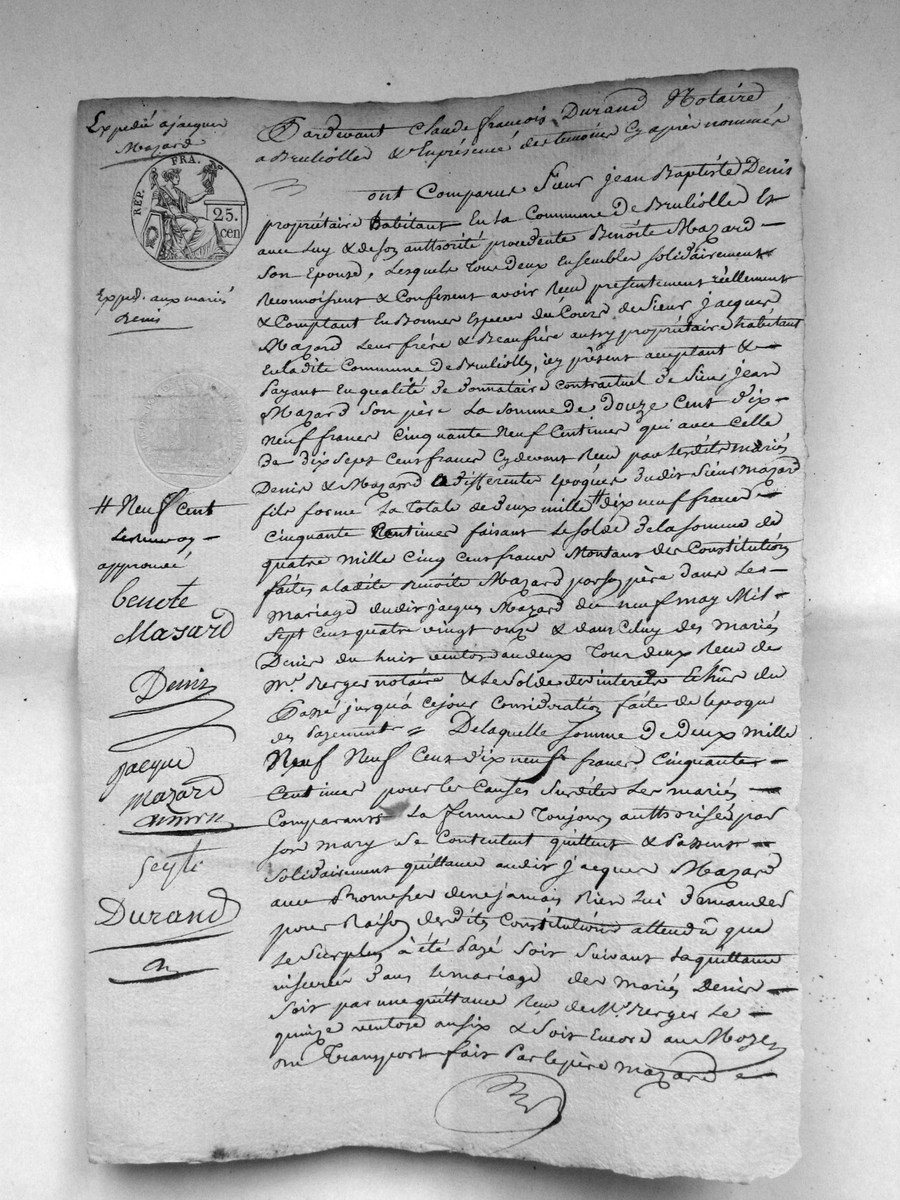 Expedié a jacques
Mazard
REP. FRA.
25.
cen
Exped. aux mariés
Denis
# Neuf cent
approuvé
benoite
Masard
Denis
jacque
mazard
Durand
Pardevant Claude françois Durand Notaire
a Brulliolles & En présence des temoins Cy après nommés
ont Comparus Sieur jean Baptiste Denis
propriétaire habitant En la Commune de Brulliolles Et
avec Luy & de son authorité procedente Benoite Mazard -
Son Epouse, Lesquels Tous deux Ensembles solidairement
Reconnoissent & Confessent avoir Reçu présentement réellement
& Comptant En Bonnes Especes du Cours de Sieur jacques
Mazard Leur frère & Beau frère aussy propriétaire habitant
En ladite Commune de Brulliolles, icy présent acceptant & -
payant En qualité de donnataire contractuel de Sieur jean
Mazard son père La somme de douze Cent dix
neuf francs Cinquante Centimes qui avec celle
de dix Sept Cent francs Cydevant Reçu par lesdits mariés
Denis & Mazard a differentes époques dudit Sieur Mazard
fils forme La Totale de deux mille # dix neuf francs -
Cinquante Centimes faisant Le solde de la somme de
quatre mille Cinq Cent francs Montant des Constitutions
faites a ladite Benoite Mazard par son père dans Les -
mariage dudit jacques Mazard du neuf may Mil -
Sept Cent quatre vingt onze & dans Celuy des mariés
Denis du huit ventose an deux Tous deux Reçu de
Mr. Berger notaire & Le Solde des interets Echus du
Passé jusqu'à ce jour Considération faite de l'epoque
des payements = De laquelle somme de deux mille
Neuf Cent dix neuf francs Cinquante -
Centimes pour les Causes Susdites Les mariés -
Comparants La femme Toujours authorisée par
son mary se Contentent quittent & Passent -
Solidairement quittance audit jacques Mazard
avec Promesse de ne jamais Rien Lui demander
pour Raison desdites Constitutions attendû que
Le Surplus à été payé soit suivant la quittance
inserée dans le mariage des mariés Denis -
Soit par une quittance Reçu de Mr. Berger Le -
quinze ventose an six & Soit Encore au Moyen
du Transport fait Par le père Mazard a -